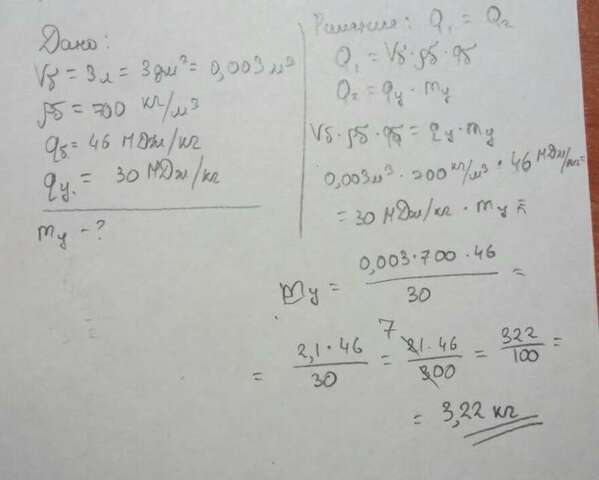 Дано:
Vб = 3л = 3дм³ = 0,003 м³
ρб = 700 кг/м³
qб = 46 МДж/кг
qу. = 30 МДж/кг
mу - ?
Решение: Q₁ = Q₂
Q₁ = Vб · ρб · qб
Q₂ = qу · mу
Vб · ρб · qб = qу · mу
0,003м³ · 700 кг/м³ · 46 МДж/кг =
= 30 МДж/кг · mу =
mу = 0,003·700·46 / 30 =
= 2,1·46 / 30 = 7 21·46 / 300 = 322 / 100 =
= 3,22 кг